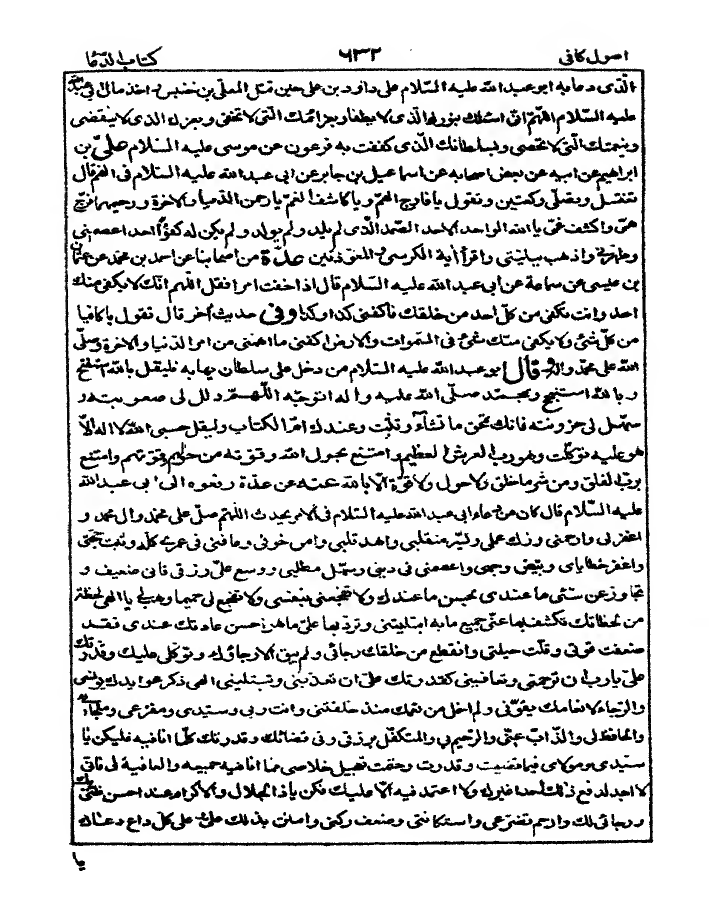 اصول كافى ٦٣٢ كتاب الدعا
الّذى دعا به ابو عبد الله عليه السّلام على داود بن على حين قتل المعلّى بن خنيس و اخذ مال ابى عبد الله
عليه السّلام اللّهمّ انى اسئلك بنورك الّذى لا يطفأ و بعزائمك الّتى لا تخفى و بعزك الّذى لا ينقضى
و بنعمتك الّتى لا تحصى و بسلطانك الّذى كففت به فرعون عن موسى عليه السلام على بن
ابراهيم عن ابيه عن بعض اصحابه عن اسماعيل بن جابر عن ابى عبد الله عليه السلام فى الهم قال
تغتسل و تصلّى ركعتين و تقول يا فارج الهمّ و يا كاشف الغمّ يا رحمن الدّنيا و الاخرة و رحيمهما فرّج
همّى و اكشف غمّى يا الله الواحد الاحد الصّمد الّذى لم يلد و لم يولد و لم يكن له كفوًا احد اعصمنى
و طهّرنى و اذهب ببليّتى و اقرأ اية الكرسى و المعوّذتين عدّة من اصحابنا عن احمد بن محمد عن عثمان
بن عيسى عن سماعة عن أبى عبد الله عليه السّلام قال اذا خفت امرا فقل اللّهم انّك لا يكفى منك
احد و انت تكفى من كلّ احد من خلقك فاكفنى كذا و كذا و فى حديث اخر قال تقول يا كافيا
من كلّ شئ و لا يكفى منك شئ فى السّموات و الارض اكفنى ما اهمّنى من امر الدّنيا و الاخرة و صلّى
الله على محمّد و اله و قال ابو عبد الله عليه السلام من دخل على سلطان يهابه فليقل بالله استفتح
و بالله استنجح و بمحمّد صلّى الله عليه و اله اتوجّه اللّهمّ ذلل لى صعوبته و
سهّل لى حزونته فانّك تمحو ما تشآء و تثبت و عندك امّ الكتاب و ليقل حسبى الله لا اله الّا
هو عليه توكّلت و هو ربّ العرش العظيم و امتنع بحول الله و قوّته من حولهم و قوّتهم و امتنع
بربّ الفلق و من شر ما خلق و لا حول و لا قوّة الّا بالله عنه عن عدّة رفعوه الى ابى عبد الله
عليه السّلام قال كان من دعاء ابى عبد الله عليه السّلام فى الامر يحدث اللّهم صلّ على محمّد و ال محمد و
اغفر لى و ارحمنى و زكّ عملى و يسّر منقلبى و اهد قلبى و امن خوفى و عافنى فى عمرى كلّه و ثبت حجّتى
و اغفر خطاياى و بيّض وجهى و اعصمنى فى دينى و سهّل مطلبى و وسع علىّ رزقى فانى ضعيف و
تجاوز عن سيّئ ما عندى بحسن ما عندك و لا تفجعنى بنفسى و لا تفجع لى حميما و هب لى يا الهى لحظة
من لحظاتك تكشف بها عنّى جميع ما به ابتليتنى و تردّ بها علىّ ما هو احسن عادتك عندى فقد
ضعفت قوّتى و قلّت حيلتى و انقطع من خلقك رجائى و لم يبق الّا رجاؤك و توكّلى عليك و قدرتك
علىّ يا ربّ ان ترحمنى و تعافينى كقدرتك علىّ ان تعذّبنى و تبتلينى الهى ذكر عوايدك يونسنى
و الرّجاء لانعامك يقوّينى و لم اخل من نعمك منذ خلقتنى و انت ربى و سيّدى و مفزعى و ملجائى
و الحافظ لى و الذّاب عنّى و الرّحيم بى و المتكفّل برزقى و فى قضائك و قدرتك كلّ ما انا فيه فليكن يا
سيّدى و مولاى فيما قضيت و قدّرت و حتمت تعجيل خلاصى ممّا انا فيه جميعه و العافية لى فانى
لا اجد لدفع ذلك احدا غيرك و لا اعتمد فيه الّا عليك فكن يا ذا الجلال و الاكرام عند احسن ظنّى بك
و رجائى لك و ارحم تضرّعى و استكانتى و ضعف ركنى و امنن بذلك علىّ و على كلّ داع دعاك
يا